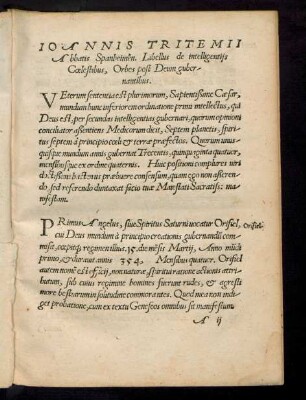 IOANNIS TRITEMII
Abbatis Spanheimēn. Libellus de intelligentijs
Cœlestibus, Orbes post Deum guber-
nantibus.
VEterum sententia est plurimorum, Sapientissime Cæsar,
mundum hunc inferiorem ordinatione primi intellectus, qui
Deus est, per secundas intelligentias gubernari, quorum opinioni
conciliator assentiens Medicorum dicit, Septem planetis, spiri-
tus septem à principio cœli & terræ præfectos. Quorum unus-
quisque mundum annis gubernat Trecentis, quinquaginta quatuor,
mensibusque ex ordine quaternis. Huic positioni complures viri
doctissimi hactenus præbuere consensum, quam ego non asseren-
do, sed referendo duntaxat facio tuæ Maiestati Sacratiss: ma-
nifestam.
PRimus Angelus, siue Spiritus Saturni vocatur Orifiel, Orifiel.
cui Deus mundum à principio creationis gubernandū com-
misit, cœpitque regimen illius, 15. die mēsis Martij, Anno mūdi
primo, & durauit annis 354. Mensibus quatuor. Orifiel
autem nomē est officij, non naturæ spiritui ratione actionis attri-
butum, sub cuius regimine homines fuerunt rudes, & agresti
more bestiarum in solitudine commorantes. Quod mea non indi-
get probatione, cum ex textu Geneseos omnibus sit manifestum
A ij